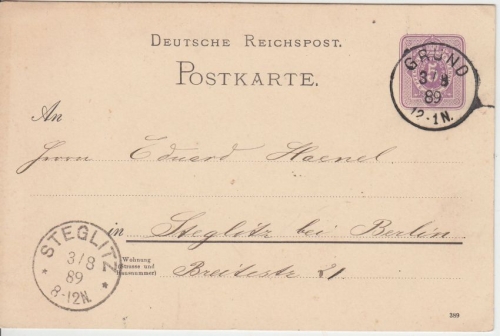 DEUTSCHE REICHSPOST.
POSTKARTE.
GRUND
3/8
89
12-1N.
An
Herrn Eduard Haenel
in Steglitz bei Berlin
Wohnung
(Strasse und
Hausnummer)
Breitestr 21
STEGLITZ
3/8
89
8-12N.
289